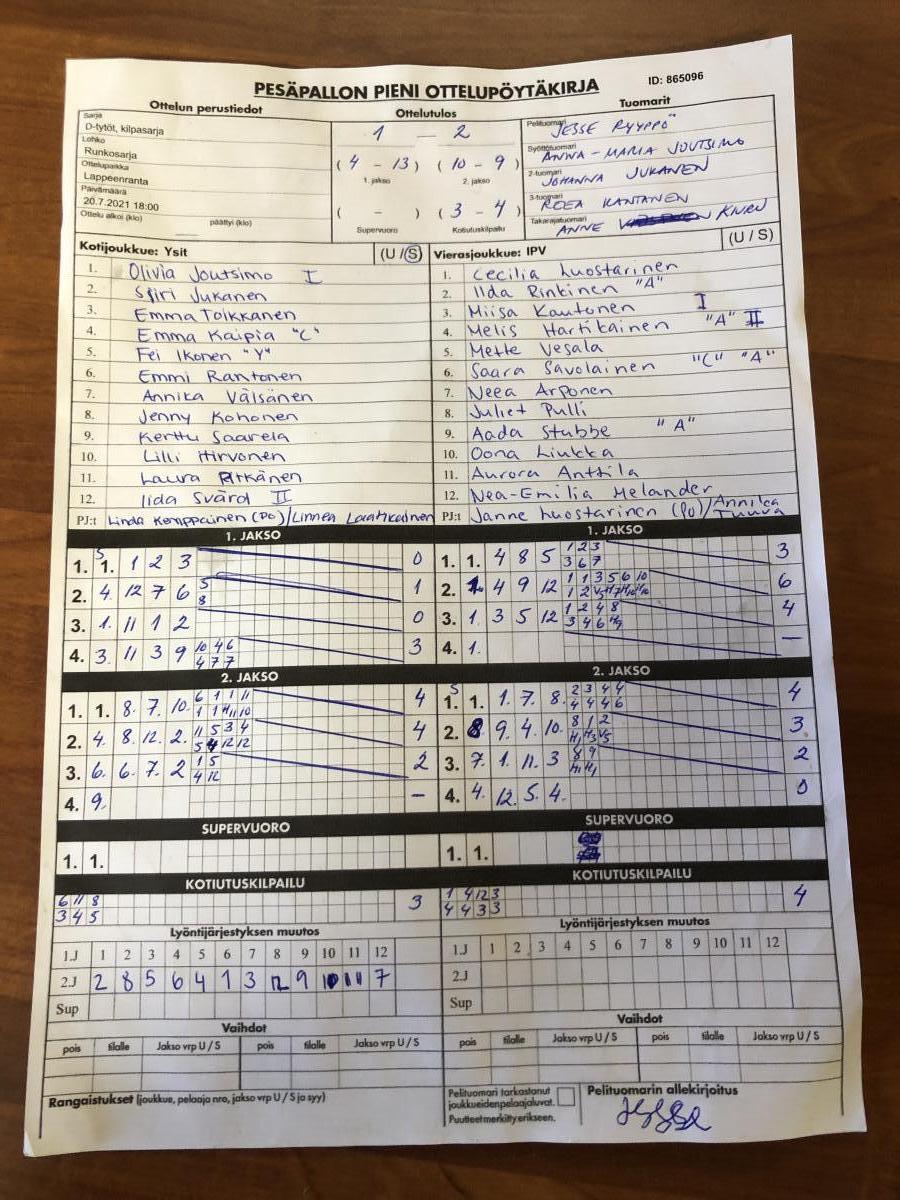 PESÄPALLON PIENI OTTELUPÖYTÄKIRJA
ID: 865096
Ottelun perustiedot
Sarja
D-tytöt, kilpasarja
Lohko
Runkosarja
Ottelupaikka
Lappeenranta
Päivämäärä
20.7.2021 18:00
Ottelu alkoi (klo) päättyi (klo)
Ottelutulos
1 – 2
( 4 – 13 ) ( 10 – 9 )
1. jakso 2. jakso
( – ) ( 3 – 4 )
Supervuoro Kotiutuskilpailu
Tuomarit
Pelituomari JESSE RYYPPÖ
Syöttötuomari ANNA-MARIA JOUTSIMO
2-tuomari JOHANNA JUKANEN
3-tuomari ROEA KANTANEN
Takarajatuomari ANNE
Kotijoukkue: Ysit (U / S)
1. Olivia Joutsimo I
2. Siiri Jukanen
3. Emma Toikkanen
4. Emma Kaipia "C"
5. Fei Ikonen "Y"
6. Emmi Rantonen
7. Annika Välsänen
8. Jenny Kohonen
9. Kerttu Saarela
10. Lilli Hirvonen
11. Laura Pitkänen
12. Iida Svärd II
PJ:t Linda Kemppainen (PO)/Linnea Laatikainen
Vierasjoukkue: IPV (U / S)
1. Cecilia Luostarinen
2. Ilda Rinkinen "A"
3. Miisa Kautonen I
4. Melis Hartikainen "A" II
5. Mette Vesala
6. Saara Savolainen "C" "A"
7. Neea Arponen
8. Juliet Pulli
9. Aada Stubbe "A"
10. Oona Liukka
11. Aurora Anttila
12. Nea-Emilia Melander
PJ:t Janne Luostarinen (PO)/Annilea Tuuva
1. JAKSO
1. 1. 1 2 3 0
2. 4. 12 7 6 5 8 1
3. 1. 11 1 2 0
4. 3. 11 3 9 10 4 6 4 7 7 3
1. JAKSO
1. 1. 4 8 5 1 2 3 3 6 7 3
2. 4 9 12 1 1 3 5 6 10 6
3. 1. 3 5 12 1 2 4 8 4
4. 1. –
2. JAKSO
1. 1. 8. 7. 10. 6 1 1 11 4
2. 4. 8. 12. 2. 11 5 3 4 5 4 12 12 4
3. 6. 6. 7. 2 1 5 4 12 2
4. 9. –
2. JAKSO
1. 1. 1. 7. 8. 2 3 4 4 4 4 4 6 4
2. 8 9. 4. 10. 8 1 2 3
3. 7. 1. 11. 3 8 9 2
4. 4. 12. 5. 4. 0
SUPERVUORO
1. 1.
SUPERVUORO
1. 1.
KOTIUTUSKILPAILU
6 11 8 3
3 4 5
KOTIUTUSKILPAILU
1 4 12 3 4
4 4 3 3
Lyöntijärjestyksen muutos
1.J 1 2 3 4 5 6 7 8 9 10 11 12
2.J 2 8 5 6 4 1 3 12 9 10 11 7
Sup
Lyöntijärjestyksen muutos
1.J 1 2 3 4 5 6 7 8 9 10 11 12
2.J
Sup
Vaihdot
pois tilalle Jakso vrp U / S pois tilalle Jakso vrp U / S
Vaihdot
pois tilalle Jakso vrp U / S pois tilalle Jakso vrp U / S
Rangaistukset (joukkue, pelaaja nro, jakso vrp U / S ja syy)
Pelituomari tarkastanut
joukkueiden pelaajaluvat.
Puutteet merkitty erikseen.
Pelituomarin allekirjoitus